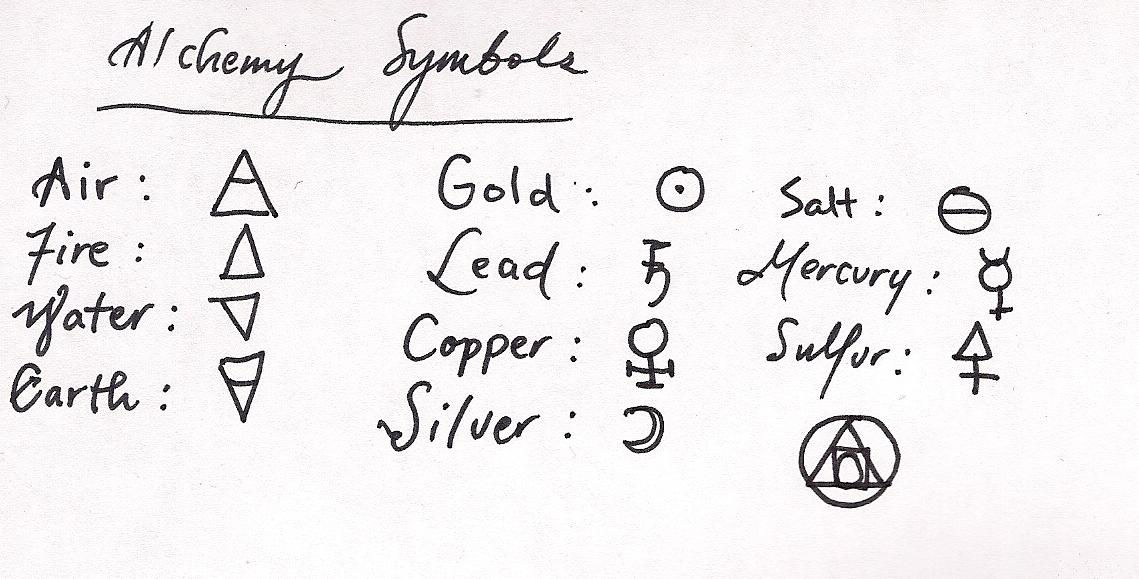 Alchemy Symbols
Air :
Fire :
Water :
Earth :
Gold :
Lead :
Copper :
Silver :
Salt :
Mercury :
Sulfur :